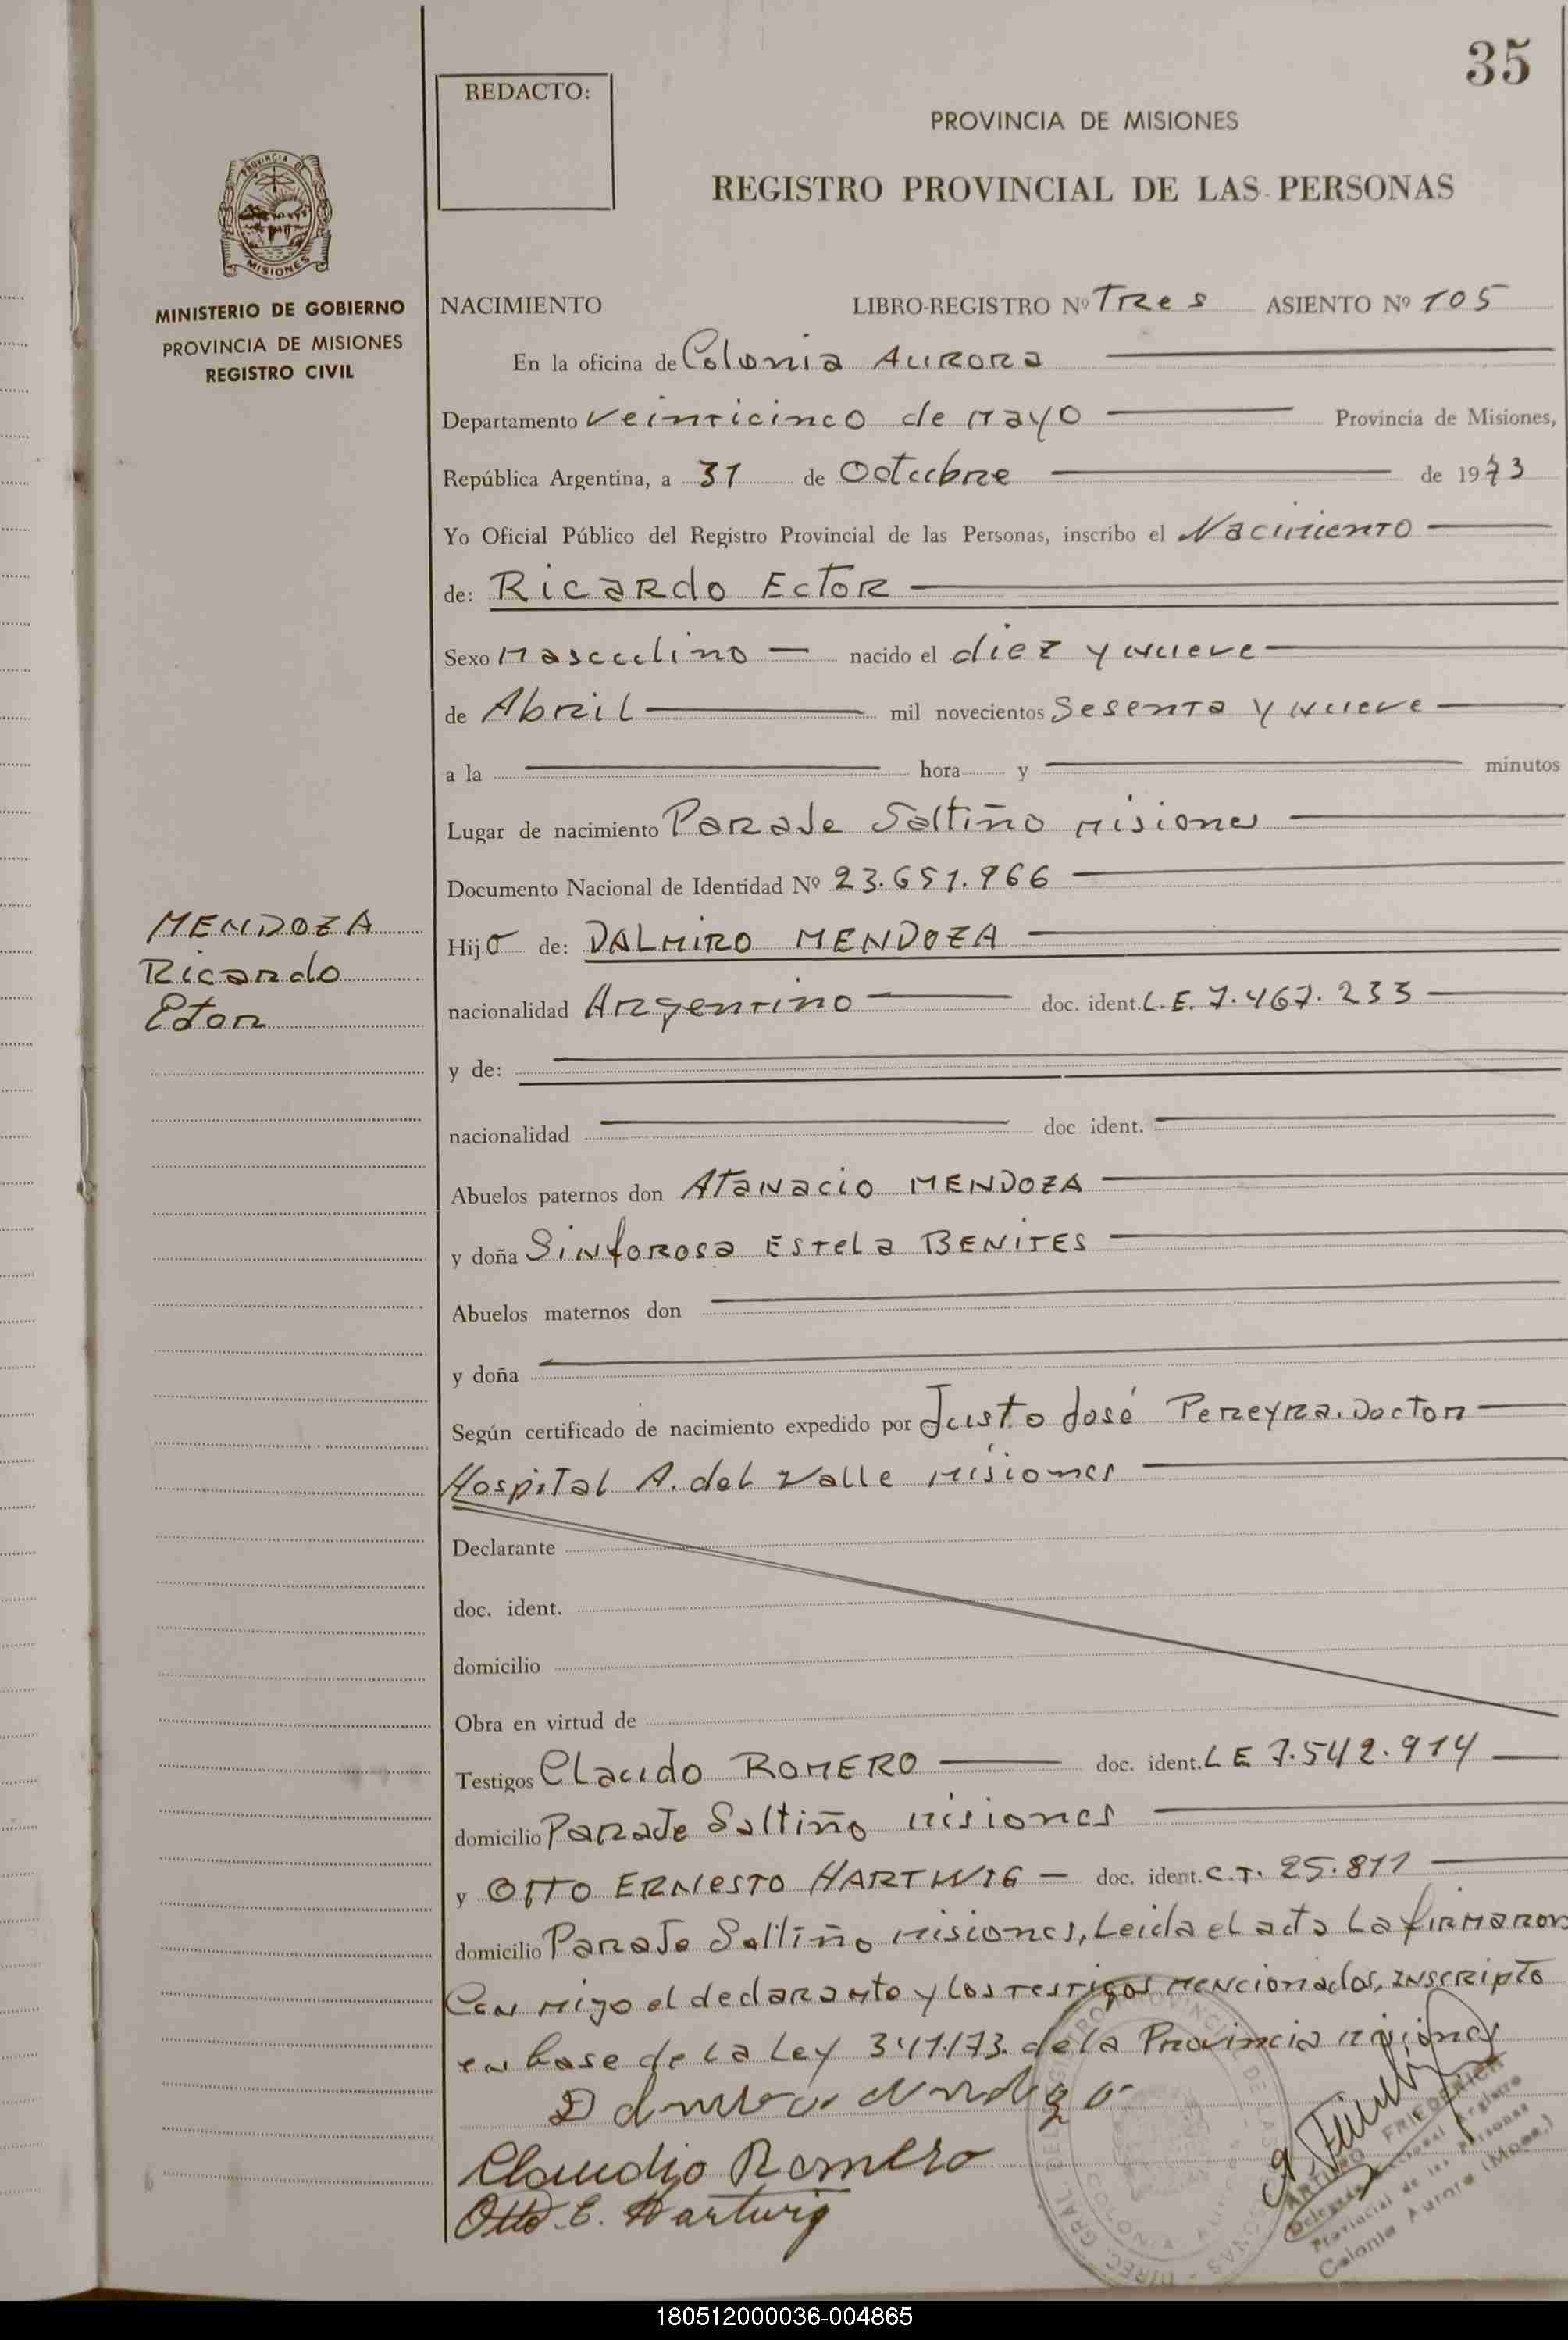 35
REDACTO:
PROVINCIA DE MISIONES
REGISTRO PROVINCIAL DE LAS PERSONAS
PROVINCIA DE
MISIONES
MINISTERIO DE GOBIERNO
PROVINCIA DE MISIONES
REGISTRO CIVIL
NACIMIENTO LIBRO-REGISTRO Nº Tres ASIENTO Nº 105
En la oficina de Colonia Aurora
Departamento Veinticinco de Mayo Provincia de Misiones,
República Argentina, a 31 de Octubre de 1973
Yo Oficial Público del Registro Provincial de las Personas, inscribo el Nacimiento
de: Ricardo Ector
Sexo Masculino nacido el diez y nueve
de Abril mil novecientos Sesenta y nueve
a la hora y minutos
Lugar de nacimiento Paraje Saltiño Misiones
Documento Nacional de Identidad Nº 23.651.966
MENDOZA
Ricardo
Etor
Hijo de: DALMIRO MENDOZA
nacionalidad Argentino doc. ident. L.E. 7.467.233
y de:
nacionalidad doc ident.
Abuelos paternos don Atanacio MENDOZA
y doña Sinforosa Estela BENITES
Abuelos maternos don
y doña
Según certificado de nacimiento expedido por Justo José Pereyra. Doctor
Hospital A. del Valle Misiones
Declarante
doc. ident.
domicilio
Obra en virtud de
Testigos Claudio ROMERO doc. ident. L E 7.542.914
domicilio Paraje Saltiño Misiones
y OTTO ERNESTO HARTWIG doc. ident. C.T. 25.811
domicilio Paraje Saltiño Misiones, Leida el acta La firmaron
Con migo el declarante y los testigos mencionados, inscripto
en base de la Ley 341.173. de la Provincia Misiones
Claudio Romero
Otto E. Hartwig
ARTURO FRIEDERICH
Delegado Seccional Registro
Provincial de las Personas
Colonia Aurora (Mnes.)
180512000036-004865